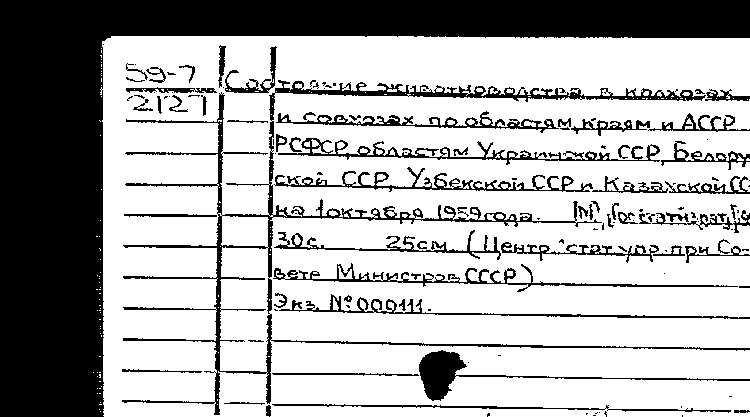 59-7
2127
Состояние животноводства в колхозах
и совхозах по областям, краям и АССР
РСФСР, областям Украинской ССР, Белорус
ской ССР, Узбекской ССР и Казахской СС
на 1 октября 1959 года. [М], Госстатиздат,
30 с. 25 см. (Центр. стат. упр. при Со-
вете Министров СССР)
Экз. № 000111.